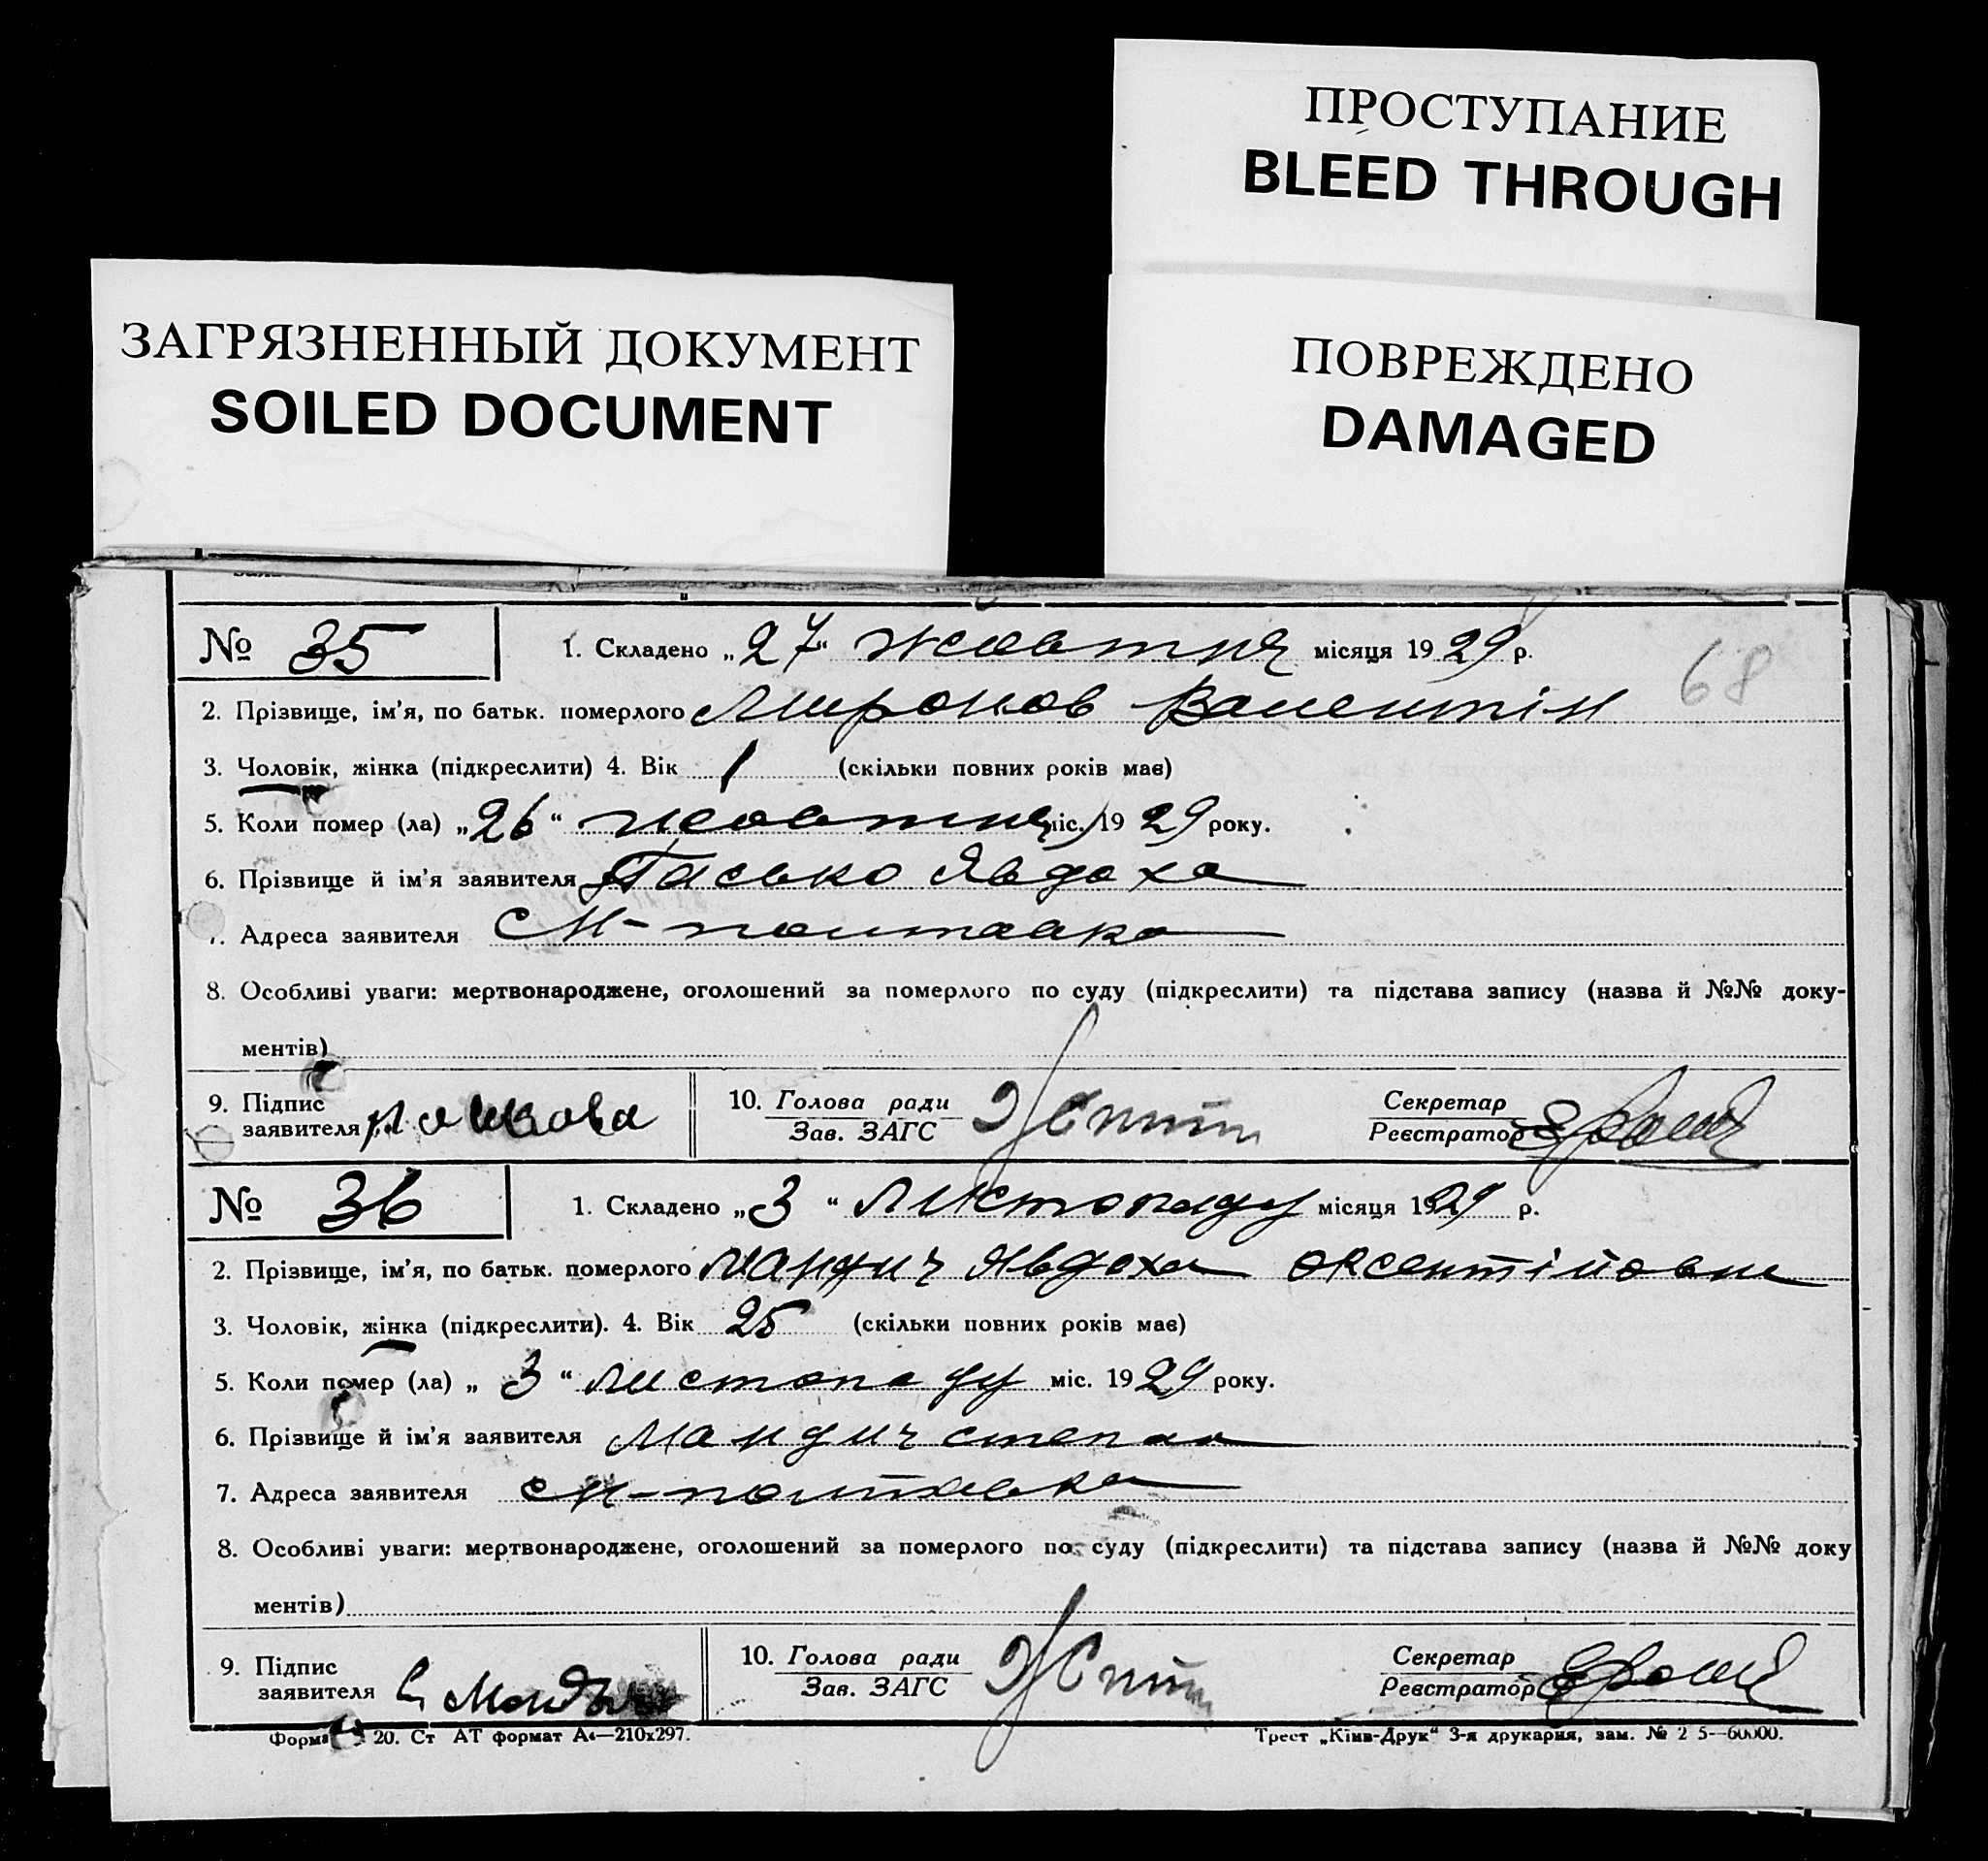 ПРОСТУПАНИЕ
BLEED THROUGH
ЗАГРЯЗНЕННЫЙ ДОКУМЕНТ
SOILED DOCUMENT
ПОВРЕЖДЕНО
DAMAGED
№ 35 1. Складено „27“ жовтня місяця 1929 р.
68
2. Прізвище, ім'я, по батьк. померлого Миронов Валентін
3. Чоловік, жінка (підкреслити) 4. Вік 1 (скільки повних років має)
5. Коли помер (ла) „26“ жовтня міс. 1929 року.
6. Прізвище й ім'я заявителя Пасько Явдоха
7. Адреса заявителя М-полтавка
8. Особливі уваги: мертвонароджене, оголошений за померлого по суду (підкреслити) та підстава запису (назва й №№ доку-
ментів)
9. Підпис заявителя 10. Голова ради Зав. ЗАГС Секретар Реєстратор
№ 36 1. Складено „3“ Листопаду місяця 1929 р.
2. Прізвище, ім'я, по батьк. померлого Мандич Явдоха Оксентійовна
3. Чоловік, жінка (підкреслити). 4. Вік 25 (скільки повних років має)
5. Коли помер (ла) „3“ листопаду міс. 1929 року.
6. Прізвище й ім'я заявителя Мандич степан
7. Адреса заявителя М-полтавка
8. Особливі уваги: мертвонароджене, оголошений за померлого по суду (підкреслити) та підстава запису (назва й №№ доку
ментів)
9. Підпис заявителя 10. Голова ради Зав. ЗАГС Секретар Реєстратор
20. Ст АТ формат А4—210х297. Трест „Київ-Друк“ 3-я друкарня, зам. №